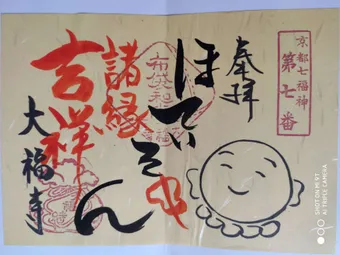 京都七福神
第七番
奉拝
ほていそん
諸縁
吉祥
大福寺
SHOT ON MI 9T
AI TRIPLE CAMERA